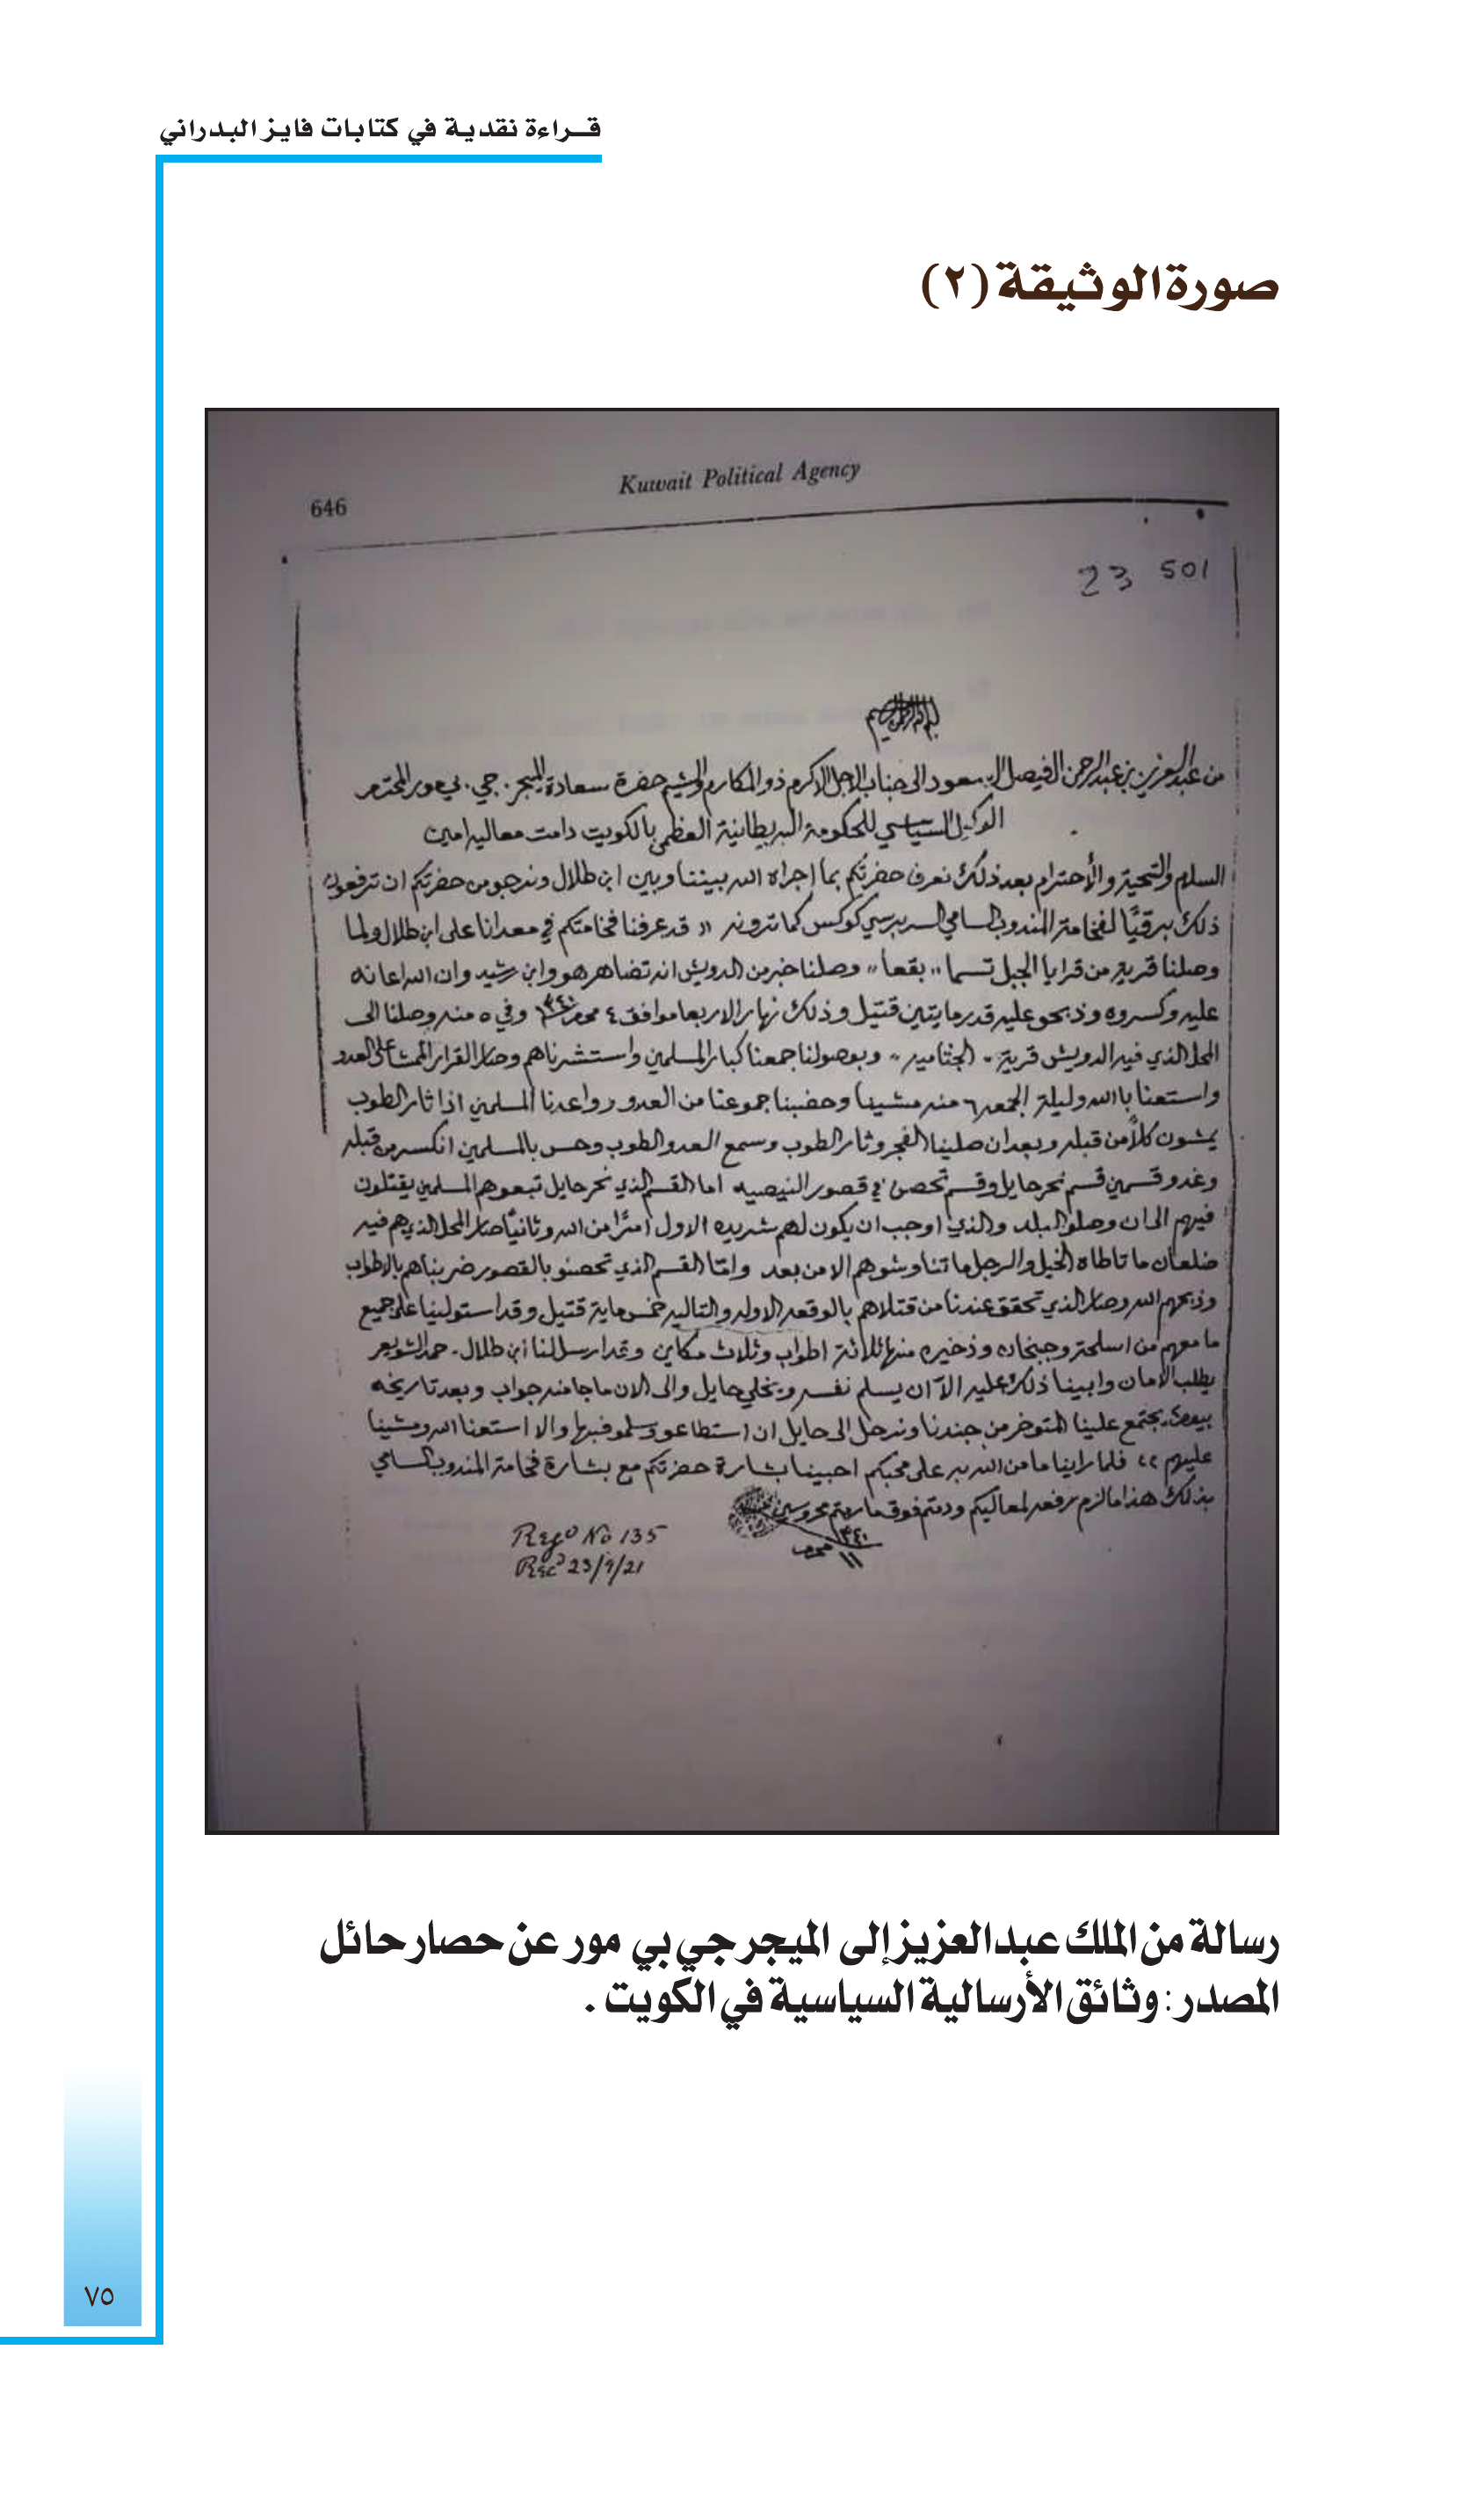 قراءة نقدية في كتابات فايز البدراني
صورة الوثيقة (٢)
646
Kuwait Political Agency
23 501
بسم الله الرحمن الرحيم
من عبدالعزيز بن عبدالرحمن الفيصل ال سعود الى جناب الاجل الاكرم ذو المكارم والشيم حضرة سعادة الميجر . جي . بي مور المحترم
الوكيل السياسي للحكومة البريطانية العظمى بالكويت دامت معاليه امين
السلام والتحية والأحترام بعد ذلك نعرف حضرتكم بما اجراه الله بيننا وبين ابن طلال ونرجو من حضرتكم ان ترفعون
ذلك برقيًا لفخامة المندوب السامي السر برسي كوكس كما ترونه " قد عرفنا فخامتكم في معدانا على ابن طلال ولما
وصلنا قريه من قرايا الجبل تسما ،، بقعا ،، وصلنا خبر من الدويش انه تضاهر هو وابن رشيد وان الله اعانه
عليه وكسروه وذبحو عليه قدر مايتين قتيل وذلك نهار الاربعا موافق ٤ محرم ٣٤٠ وفي ٥ منه وصلنا الى
المحل الذي فيه الدويش قرية ،، الجثاميه ،، وبوصولنا جمعنا كبار المسلمين واستشرناهم وصار القرار الممشا على العدو
واستعنا بالله وليلة الجمعه ٦ منه مشينا وحضبنا جموعنا من العدو وواعدنا المسلمين اذا ثار الطوب
يمشون كلاً من قبله وبعد ان صلينا الفجر وثار الطوب وسمع العدو الطوب وحس بالمسلمين انكسر من قبله
وغدو قسمين قسم نحر حايل وقسم تحصن في قصور النيصيه اما القسم الذي نحر حايل تبعوهم المسلمين يقتلون
فيهم الى ان وصلو البلد والذي اوجب ان يكون لهم شريده الاول امرًا من الله وثانيًا صار المحل الذي هم فيه
ضلعان ما تاطاه الخيل والرجل ما تناوشوهم الا من بعد وامّا القسم الذي تحصنو بالقصور ضربناهم بالاطواب
وذبحهم الله وصار الذي تحقق عندنا من قتلاهم بالوقعه الاوله والتاليه خمس ماية قتيل وقد استولينا على جميع
ما معهم من اسلحة وجبخانه وذخيره منها ثلاثة اطواب وثلاث مكاين وقد ارسل لنا ابن طلال . حمد الشويعر
يطلب الأمان وابينا ذلك عليه الآ ان يسلم نفسه ويخلي حايل والى الان ما جا منه جواب وبعد تاريخه
يجتمع علينا المتوخر من جندنا ونرحل الى حايل ان استطاعو وسلمو فبها والا استعنا الله ومشينا
عليهم " فلما راينا ما من الله به على محبكم احبينا بشارة حضرتكم مع بشارة فخامة المندوب السامي
بذلك هذا ما لزم رفعه لمعاليكم ودمتم فوق ما رمتم محروسين
٣٤٠
١١ محرم
Regd No 135
Recd 23/9/21
رسالة من الملك عبدالعزيز إلى الميجر جي بي مور عن حصار حائل
المصدر : وثائق الأرسالية السياسية في الكويت .
٧٥